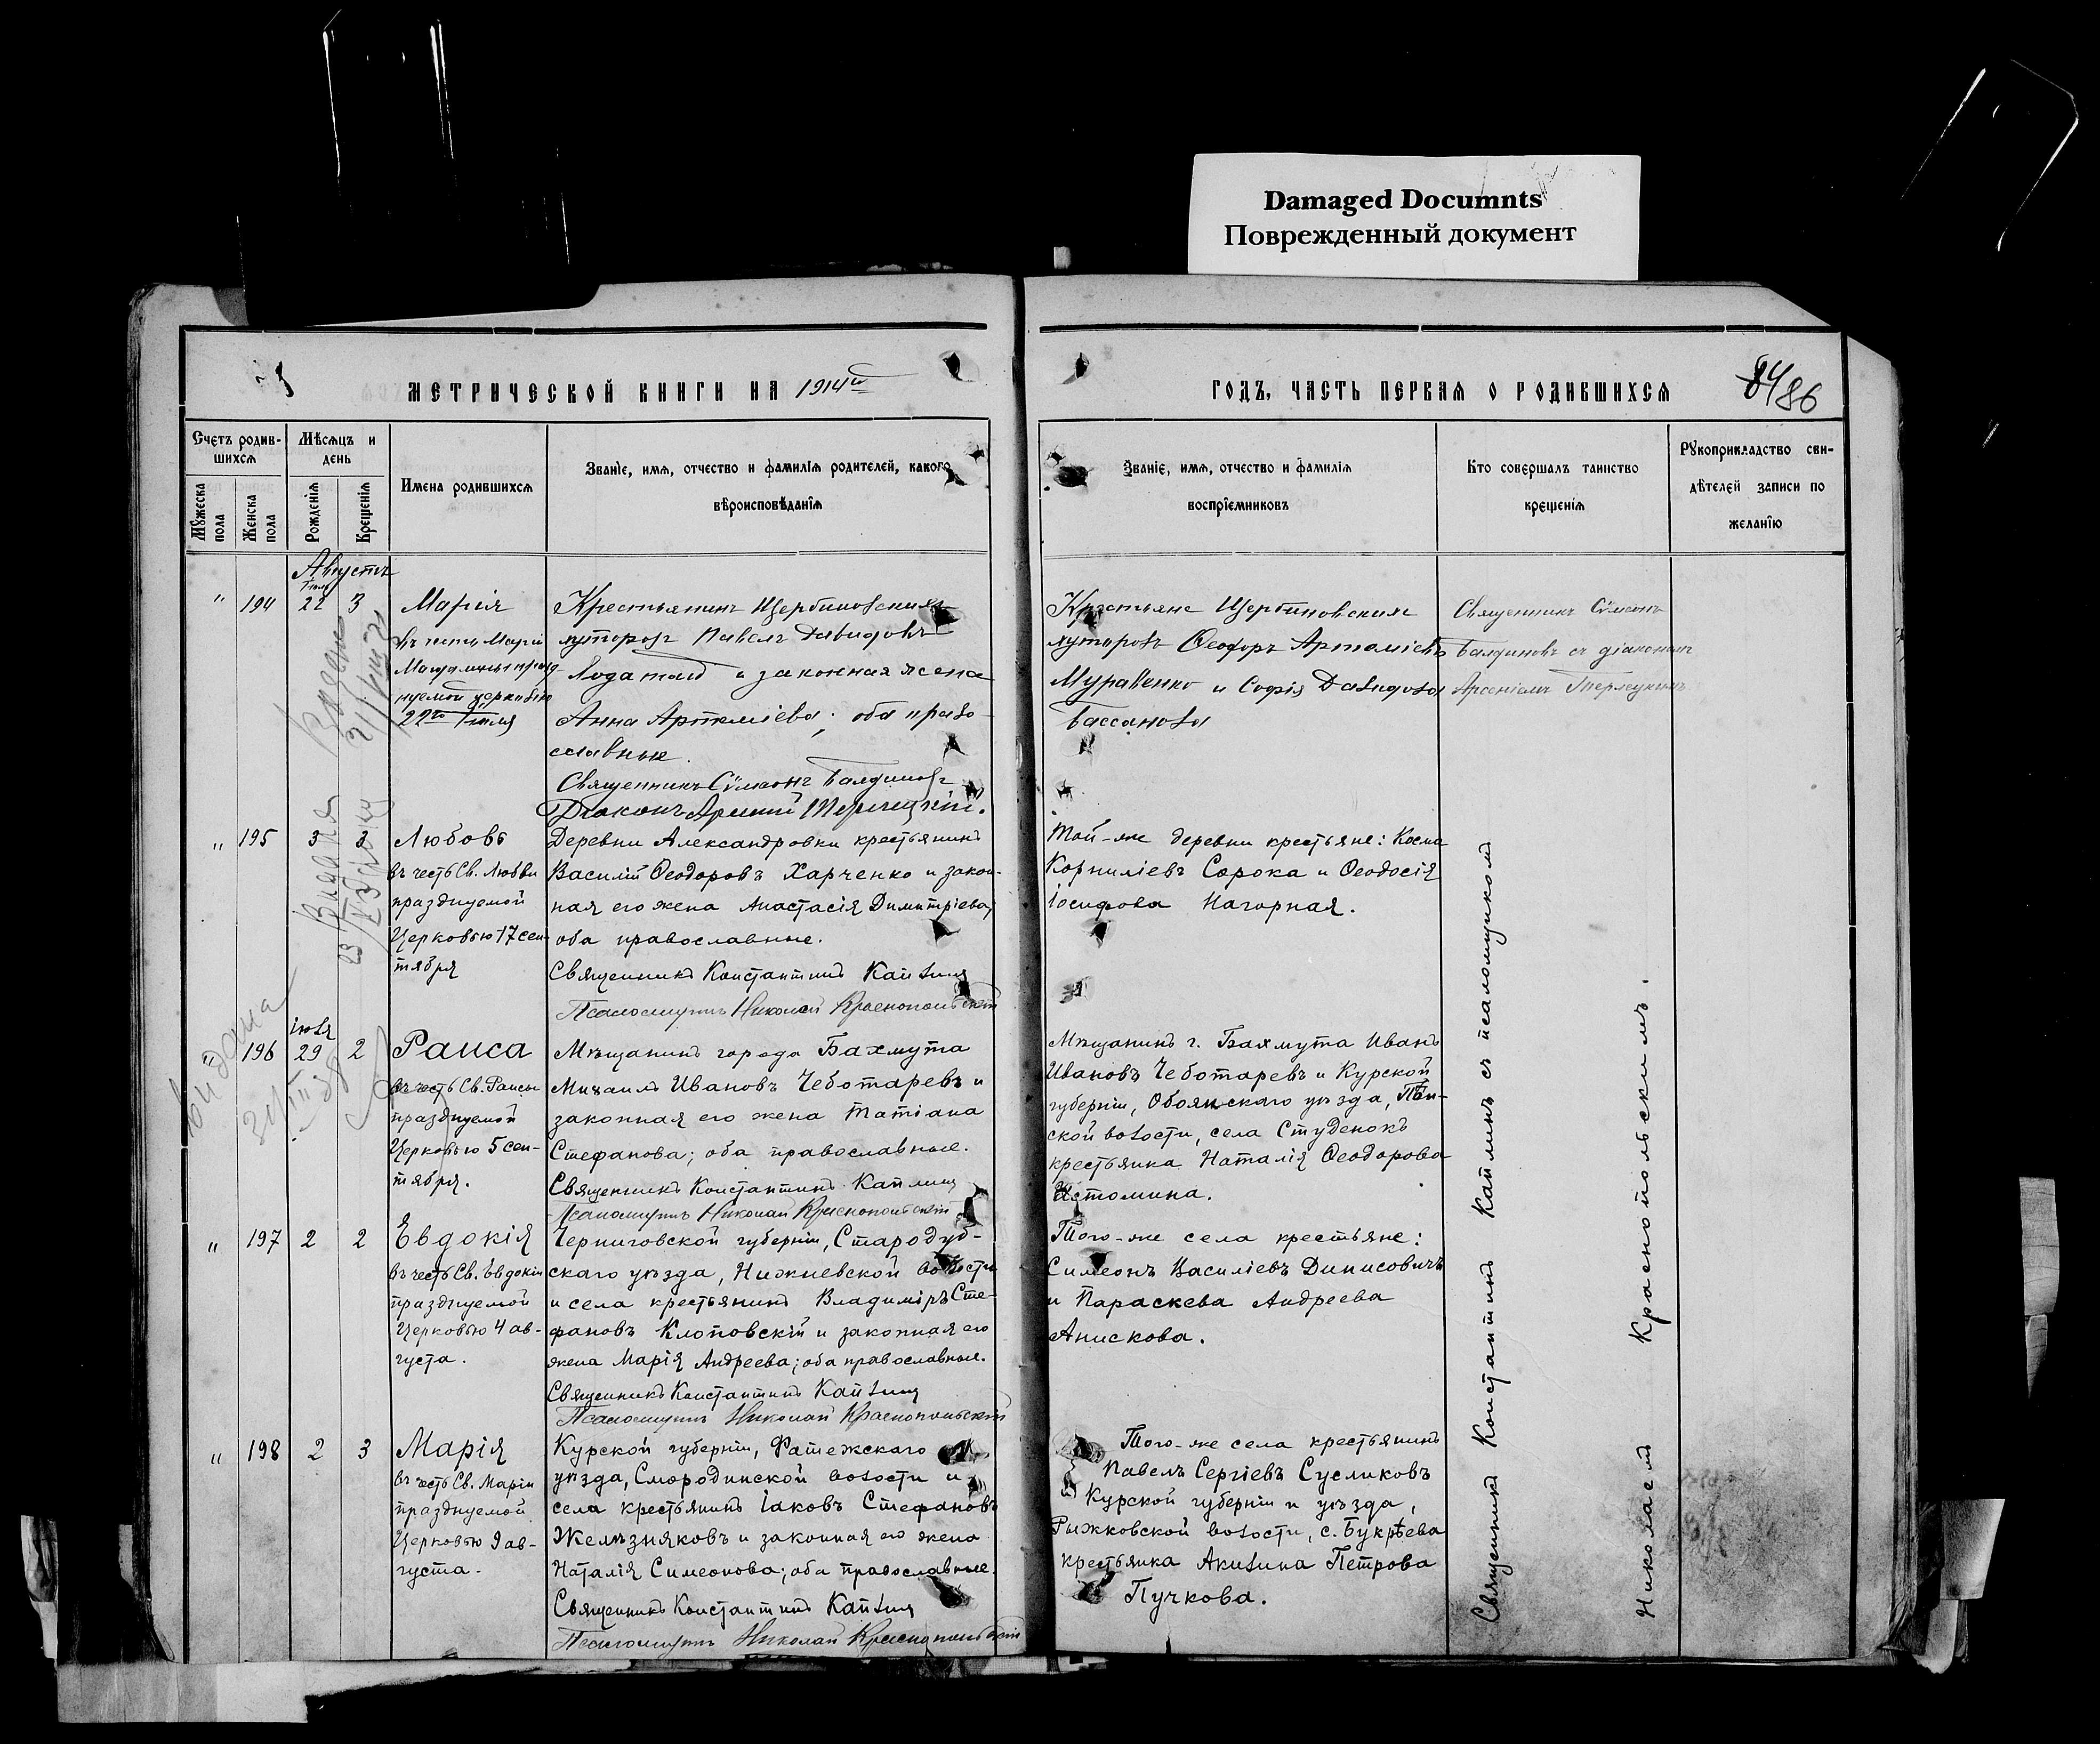 Damaged Documnts
Поврежденный документ
МЕТРИЧЕСКОЙ КНИГИ НА 1914й
ГОДЪ, ЧАСТЬ ПЕРВАЯ О РОДИВШИХСЯ
84 86
Счетъ родив-
шихся
Мужеска пола
Женска пола
Мѣсяцъ и
день
Рожденія
Крещенія
Имена родившихся
Званіе, имя, отчество и фамилія родителей, какого
вѣроисповѣданія
Званіе, имя, отчество и фамилія
воспріемниковъ
Кто совершалъ таинство
крещенія
Рукоприкладство сви-
дѣтелей записи по
желанію
Августъ
" 194 22 3
Марія
въ честь Маріи
Магдалины празд-
нуемой церковію
22го Іюля
Крестьянинъ Щербиновскихъ
хуторовъ Павелъ Давидовъ
и законная жена
Анна Артеміева; оба право-
славные.
Священникъ Сѵмеонъ Балдиновъ
Крестьяне Щербиновскихъ
хуторовъ Ѳеодоръ Артеміевъ
Муравенко и Софія Давидова
Бассанова
Священникъ Сѵмеонъ
Балдиновъ съ діакономъ
Арсеніемъ
" 195 3 3
Любовь
въ честь Св. Любви
празднуемой
Церковью 17 сен-
тября
Деревни Александровки крестьянинъ
Василій Ѳеодоровъ Харченко и закон-
ная его жена Анастасія Димитріева;
оба православные.
Священникъ Константинъ Каплинъ
Псаломщикъ Николай Краснопольскій
Той-же деревни крестьяне: Косма
Корниліевъ Сорока и Ѳеодосія
Іосифова Нагорная.
выдана
" 196 29 2
Раиса
въ честь Св. Раисы
празднуемой
Церковью 5 сен-
тября.
Мѣщанинъ города Бахмута
Михаилъ Ивановъ Чеботаревъ и
законная его жена Татіана
Стефанова; оба православные.
Священникъ Константинъ Каплинъ
Псаломщикъ Николай Краснопольскій
Мѣщанинъ г. Бахмута Иванъ
Ивановъ Чеботаревъ и Курской
губерніи, Обоянскаго уѣзда, Пѣн-
ской волости, села Студенокъ
крестьянка Наталія Ѳеодорова
Истомина.
" 197 2 2
Евдокія
въ честь Св. Евдокіи
празднуемой
Церковью 4 ав-
густа.
Черниговской губерніи, Стародуб-
скаго уѣзда, Нижневской волости
и села крестьянинъ Владиміръ Сте-
фановъ Клоповскій и законная его
жена Марія Андреева; оба православные.
Священникъ Константинъ Каплинъ
Псаломщикъ Николай Краснопольскій
Того-же села крестьяне:
Симеонъ Василіевъ Динисовичъ
и Параскева Андреева
Анискова.
" 198 2 3
Марія
въ честь Св. Маріи
празднуемой
Церковью 9 ав-
густа.
Курской губерніи, Фатежскаго
уѣзда, Смородинской волости и
села крестьянинъ Іаковъ Стефановъ
Желѣзняковъ и законная его жена
Наталія Симеонова; оба православные.
Священникъ Константинъ Каплинъ
Псаломщикъ Николай Краснопольскій
Того-же села крестьянинъ
Павелъ Сергіевъ Сусликовъ
Курской губерніи и уѣзда,
Рыжковской волости, с. Букрѣева
крестьянка Акилина Петрова
Пучкова.
Священникъ Константинъ Каплинъ съ псаломщикомъ
Николаемъ Краснопольскимъ.